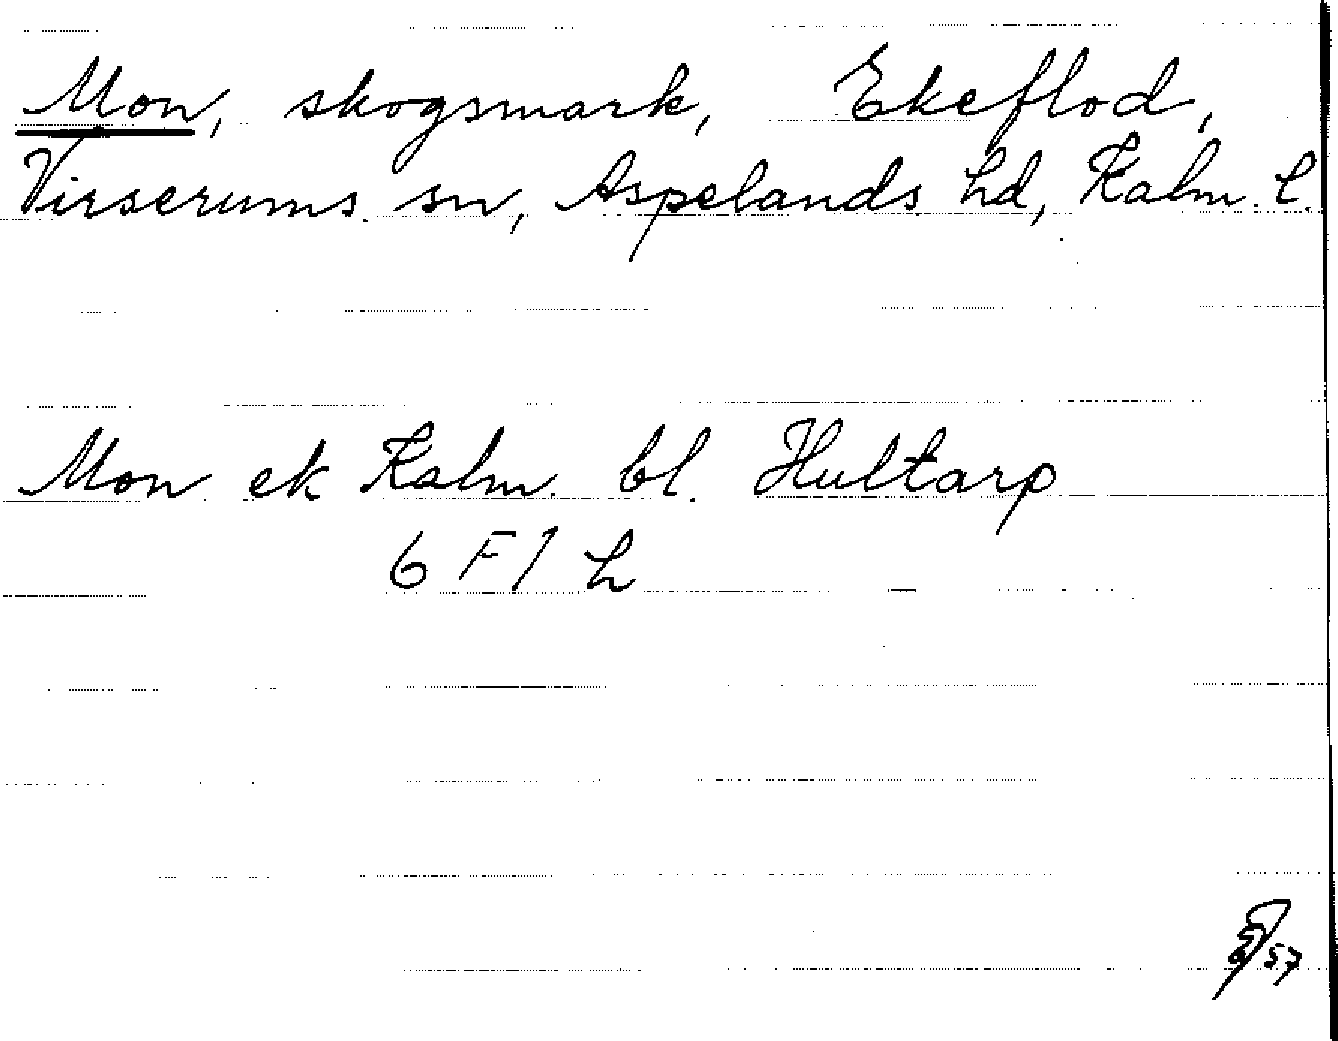 Mon, skogsmark, Ekeflod,
Virserums sn, Aspelands hd, Kalm. l.
Mon ek Kalm. bl. Hultarp
6 F 1 h
57